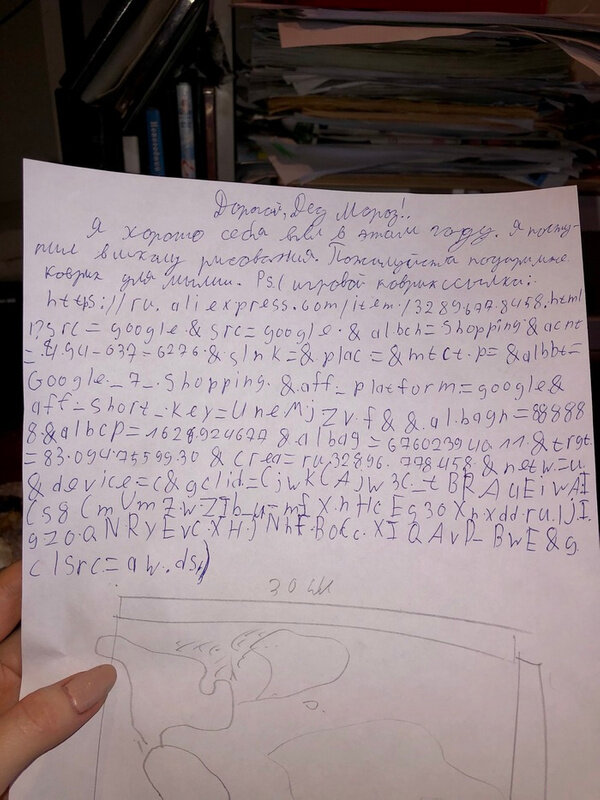 Дорогой, Дед Мороз!.
Я хорошо себя вёл в этом году. Я посту-
пил в школу рисования. Пожалуйста подари мне
коврик для мыши. Ps.( игровой коврик ссылка:
https://ru.aliexpress.com/item/32896778458.html
!?src=google&src=google&albch=shopping&acnt
=494-037-6276&slnk=&plac=&mtctp=&albbt=
Google_7_shopping&aff_platform=google&
aff_short_key=UneMjzVf&&albagn=88888
8&albcp=1628924677&albag=67602394011&trgt
=83.09475599.30&crea=ru32896778458&netw=u
&device=c&gclid=CjwKCAjw3c_tBRAuEiwAI
Csg8CmVm7wZIb_u-mfXhHcEg30Xhxddru.Ij.I.
gzoaNRyEvcXHjNhfBoCc.XIQAvD_BwE&g
clsrc=aw.ds)
30 см